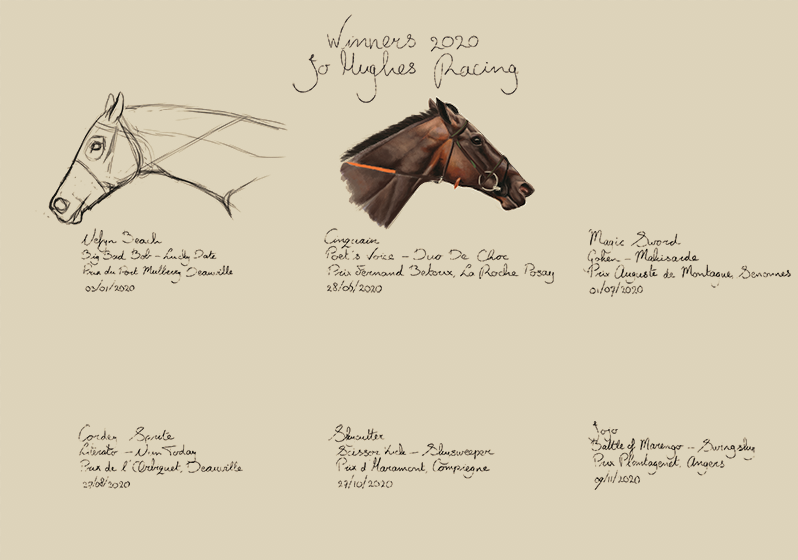 Winners 2020
Jo Hughes Racing
Nefyn Beach
Big Bad Bob - Lucky Date
Prix du Port Mulberry Deauville
03/01/2020
Cinquain
Poet's Voice - Duo De Choc
Prix Fernand Betoux, La Roche Posay
28/06/2020
Magic Sword
Goken - Makisarde
Prix Auguste de Montaigne, Senonnes
01/07/2020
Corden Sprite
Literato - Nun Today
Prix de l'Orbiquet, Deauville
27/08/2020
Skycutter
Scissor Kick - Skysweeper
Prix d'Haramont, Compiegne
27/10/2020
Jojo
Battle of Marengo - Swingsky
Prix Plantagenet, Angers
09/11/2020